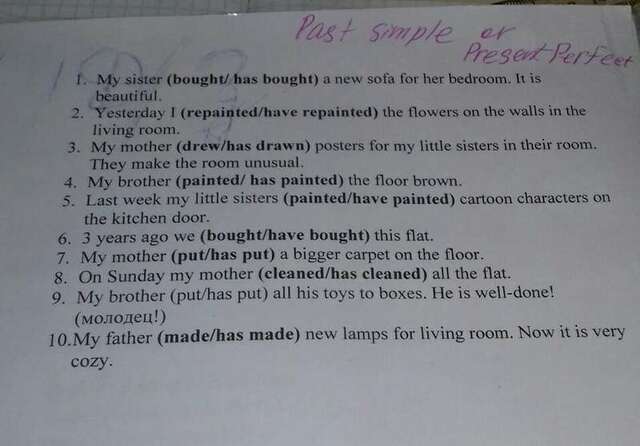 Past simple or
Present Perfect
1. My sister (bought/ has bought) a new sofa for her bedroom. It is
beautiful.
2. Yesterday I (repainted/have repainted) the flowers on the walls in the
living room.
3. My mother (drew/has drawn) posters for my little sisters in their room.
They make the room unusual.
4. My brother (painted/ has painted) the floor brown.
5. Last week my little sisters (painted/have painted) cartoon characters on
the kitchen door.
6. 3 years ago we (bought/have bought) this flat.
7. My mother (put/has put) a bigger carpet on the floor.
8. On Sunday my mother (cleaned/has cleaned) all the flat.
9. My brother (put/has put) all his toys to boxes. He is well-done!
(молодец!)
10.My father (made/has made) new lamps for living room. Now it is very
cozy.